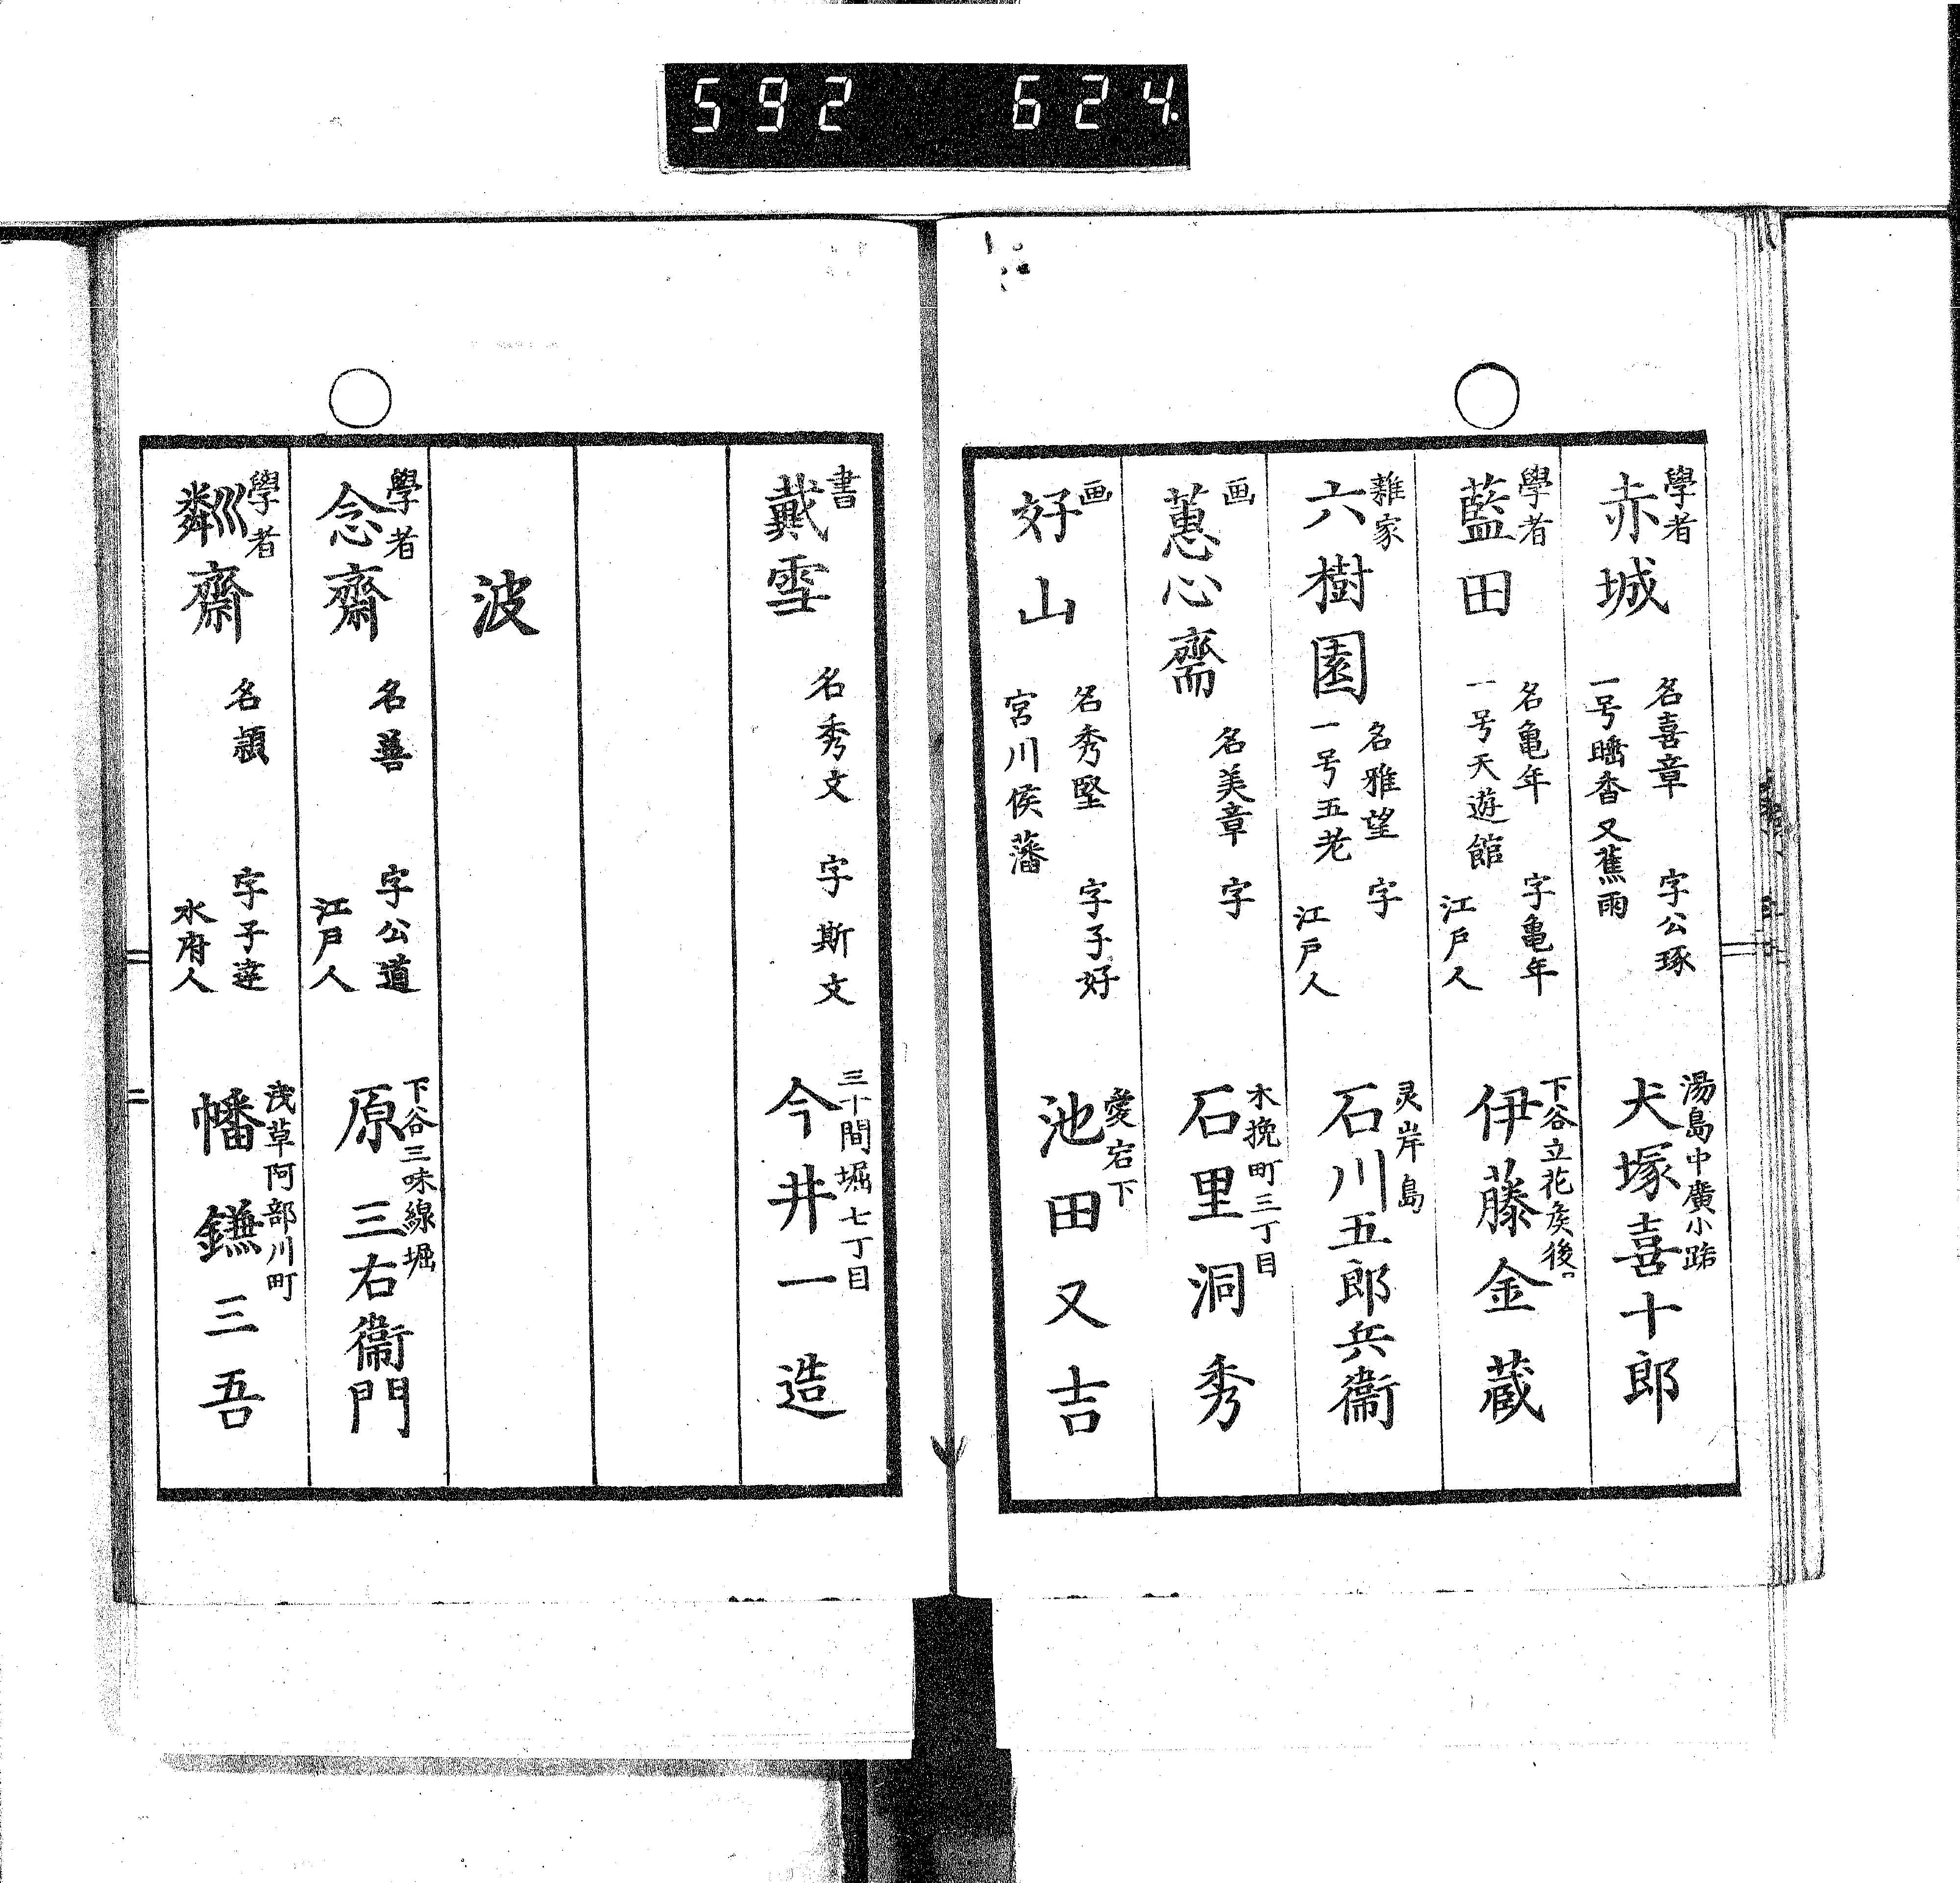 592 624.
學者
赤城
名喜章 字公琢
一号睡香又蕉雨
湯島中廣小路
犬塚喜十郎
學者
藍田
名亀年 字亀年
一号天遊館 江戸人
下谷立花矦後口
伊藤金蔵
雜家
六樹園
名雅望 字
一号五老 江戸人
灵岸島
石川五郎兵衞
画
蕙心齋
名美章 字
木挽町三丁目
石里洞秀
画
好山
名秀堅 字子好
宮川侯藩
愛宕下
池田又吉
書
戴雪
名秀文 字斯文
三十間堀七丁目
今井一造
波
學者
念齋
名善 字公道
江戸人
下谷三味線堀
原三右衞門
學者
粼齋
名顕 字子達
水府人
浅草阿部川町
幡鎌三吾
二